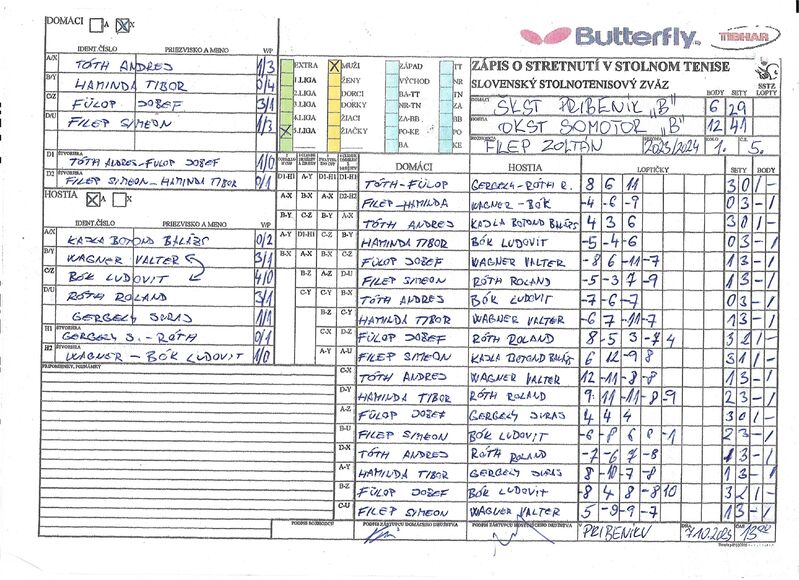 DOMÁCI A X
Butterfly
TIBHAR
IDENT.ČÍSLO PRIEZVISKO A MENO V/P
A/X TÓTH ANDREJ 1/3
B/Y HAMINDA TIBOR 0/4
C/Z FÜLOP JOŽEF 3/1
D/U FILEP SIMEON 1/3
D1 ŠTVORHRA TÓTH ANDREJ-FÜLOP JOŽEF 1/0
D2 ŠTVORHRA FILEP SIMEON-HAMINDA TIBOR 0/1
HOSTIA A X
IDENT.ČÍSLO PRIEZVISKO A MENO V/P
A/X KAJLA BOTOND BALÁZS 0/2
B/Y WAGNER VALTER 3/1
C/Z BÓK LUDOVIT 4/0
D/U RÓTH ROLAND 3/1
GERGELY JURAJ 1/1
H1 ŠTVORHRA GERGELY J. - RÓTH 0/1
H2 ŠTVORHRA WAGNER - BÓK LUDOVIT 1/0
PRIPOMIENKY, POZNÁMKY
EXTRA MUŽI ZÁPAD TT
1.LIGA ŽENY VÝCHOD NR
2.LIGA DORCI BA-TT TN
3.LIGA DORKY NR-TN ZA
4.LIGA ŽIACI ZA-BB BB
5.LIGA ŽIAČKY PO-KE PO
BA KE
ZÁPIS O STRETNUTÍ V STOLNOM TENISE
SLOVENSKÝ STOLNOTENISOVÝ ZVÄZ
SSTZ
BODY SETY LOPTY
DOMÁCI ŠKST PRIBENIK "B" 6 29
HOSTIA OKST SOMOTOR "B" 12 41
FILEP ZOLTÁN 2023/2024 1. 5.
DOMÁCI HOSTIA LOPTIČKY SETY BODY
TÓTH-FÜLOP GERGELY-RÓTH R. 8 6 11 3 0 1 -
FILEP-HAMINDA WAGNER-BÓK -4 -6 -9 0 3 - 1
TÓTH ANDREJ KAJLA BOTOND BALÁZS 4 3 6 3 0 1 -
HAMINDA TIBOR BÓK LUDOVIT -5 -4 -6 0 3 - 1
FÜLOP JOŽEF WAGNER VALTER -8 6 -11 -7 1 3 - 1
FILEP SIMEON RÓTH ROLAND -5 -3 7 -9 1 3 - 1
TÓTH ANDREJ BÓK LUDOVIT -7 -6 -7 0 3 - 1
HAMINDA TIBOR WAGNER VALTER -6 7 -11 -7 1 3 - 1
FÜLOP JOŽEF RÓTH ROLAND 8 -5 3 -7 4 3 2 1 -
FILEP SIMEON KAJLA BOTOND BALÁZS 6 12 -9 8 3 1 1 -
TÓTH ANDREJ WAGNER VALTER 12 -11 -8 -8 1 3 - 1
HAMINDA TIBOR RÓTH ROLAND 9 -11 11 -8 -9 2 3 - 1
FÜLOP JOŽEF GERGELY JURAJ 4 4 4 3 0 1 -
FILEP SIMEON BÓK LUDOVIT -6 -8 6 8 -1 2 3 - 1
TÓTH ANDREJ RÓTH ROLAND -7 -6 7 -8 1 3 - 1
HAMINDA TIBOR GERGELY JURAJ 8 -10 -7 -8 1 3 - 1
FÜLOP JOŽEF BÓK LUDOVIT -8 4 8 -8 10 3 2 1 -
FILEP SIMEON WAGNER VALTER 5 -9 -9 -7 1 3 - 1
PODPIS ROZHODCU PODPIS ZÁSTUPCU DOMÁCEHO DRUŽSTVA PODPIS ZÁSTUPCU HOSŤUJÚCEHO DRUŽSTVA V PRIBENIKU DŇA 7.10.2023 ČAS 13:00